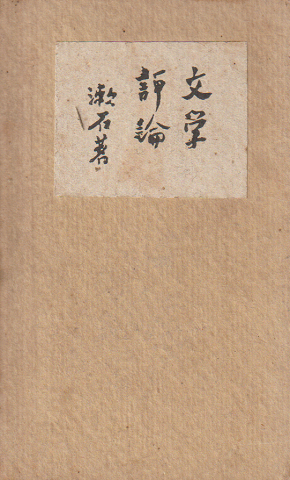 文学
評論
漱石著